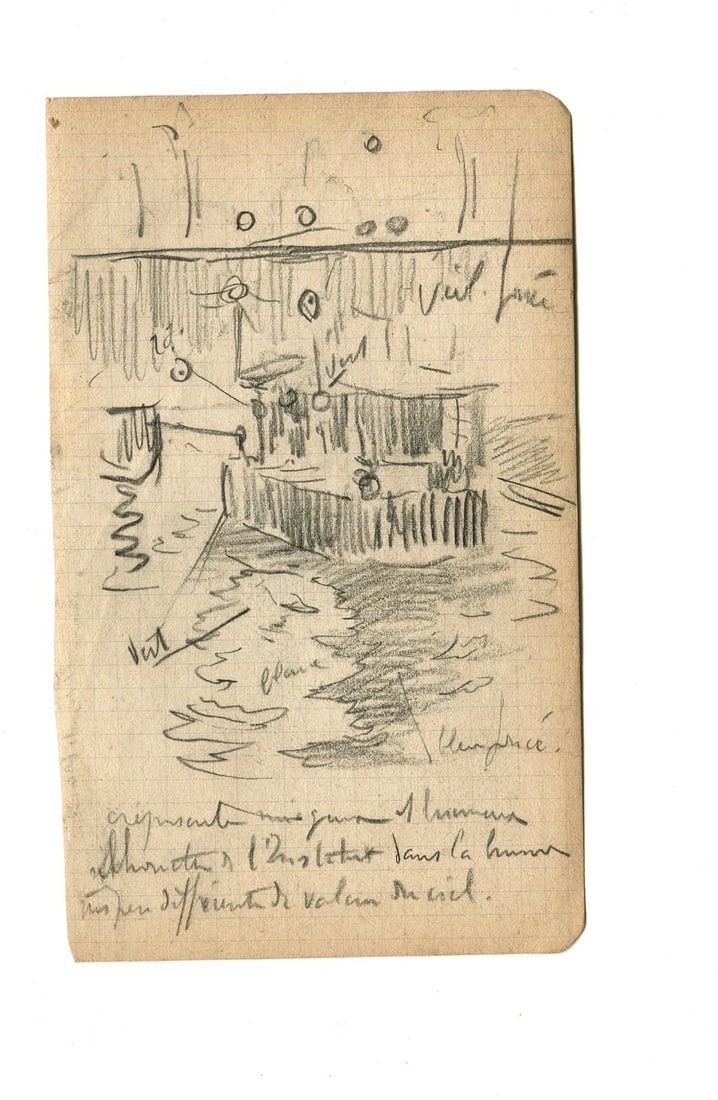 foncé
rg.
Vert
Vert
blanc
bleu foncé.
crépuscule brumeux
silhouette de l'Institut dans la brume
un peu différente de valeur du ciel.